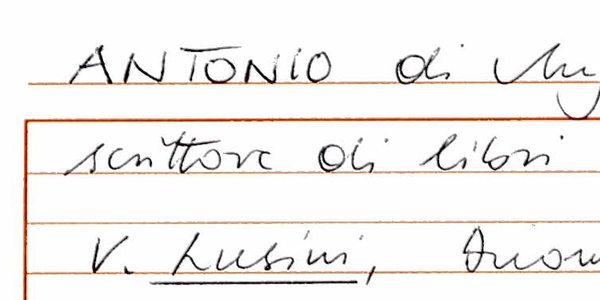 ANTONIO di
scrittore di libri
V. Lusini,